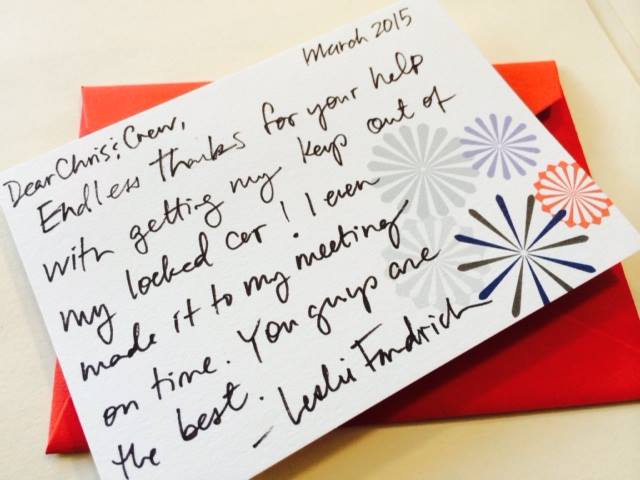 March 2015
Dear Chris & Crew,
Endless thanks for your help
with getting my keys out of
my locked car! I even
made it to my meeting
on time. You guys are
the best.
- Leslie Fandrich